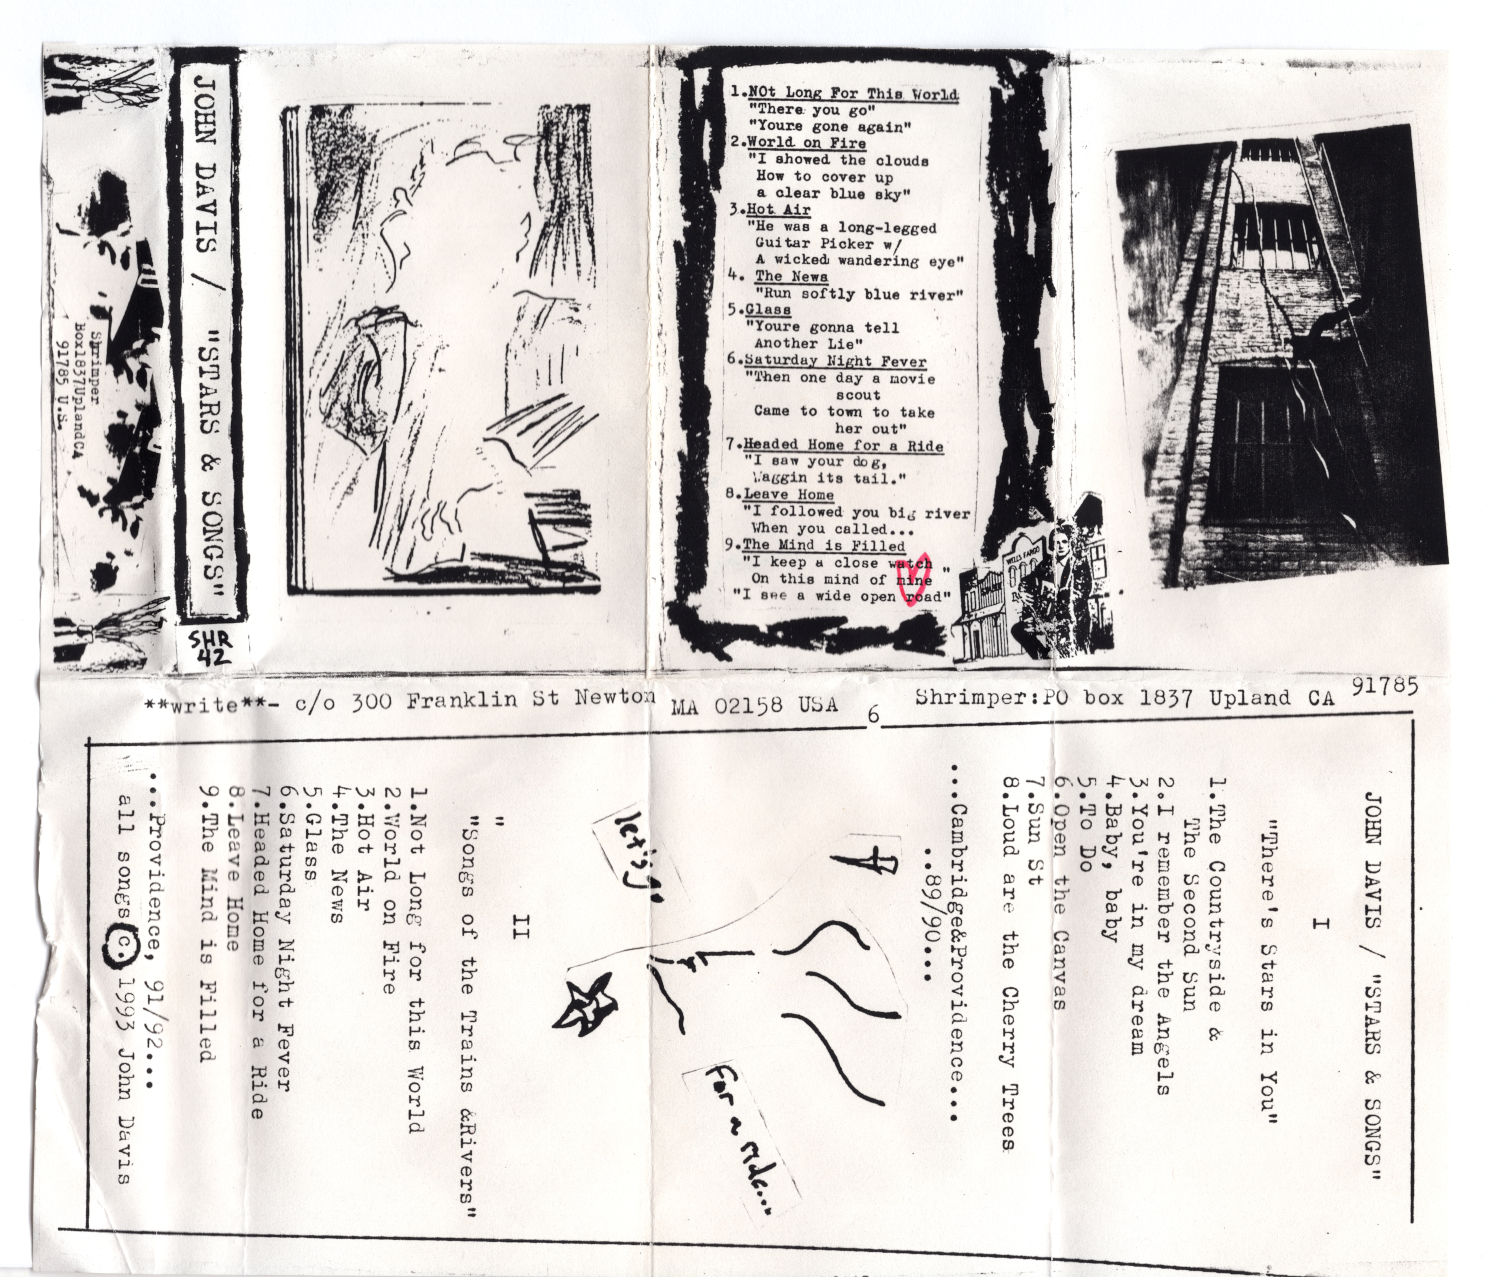 JOHN DAVIS / "STARS & SONGS"
SHR
42
Shrimper
Box1837UplandCA
91785 U.S.
1.NOt Long For This World
"There you go"
"Youre gone again"
2.World on Fire
"I showed the clouds
How to cover up
a clear blue sky"
3.Hot Air
"He was a long-legged
Guitar Picker w/
A wicked wandering eye"
4. The News
"Run softly blue river"
5.Glass
"Youre gonna tell
Another Lie"
6.Saturday Night Fever
"Then one day a movie
scout
Came to town to take
her out"
7.Headed Home for a Ride
"I saw your dog,
Waggin its tail."
8.Leave Home
"I followed you big river
When you called...
9.The Mind is Filled
"I keep a close watch "
On this mind of mine
"I see a wide open road"
WELLS FARGO
**write**- c/o 300 Franklin St Newton MA 02158 USA 6 Shrimper:PO box 1837 Upland CA 91785
JOHN DAVIS / "STARS & SONGS"
I
"There's Stars in You"
1.The Countryside &
The Second Sun
2.I remember the Angels
3.You're in my dream
4.Baby, baby
5.To Do
6.Open the Canvas
7.Sun St
8.Loud are the Cherry Trees
...Cambridge&Providence...
..89/90...
let's go
for a ride...
II
"
"Songs of the Trains &Rivers"
1.Not Long for this World
2.World on Fire
3.Hot Air
4.The News
5.Glass
6.Saturday Night Fever
7.Headed Home for a Ride
8.Leave Home
9.The Mind is Filled
...Providence, 91/92...
all songs c. 1993 John Davis